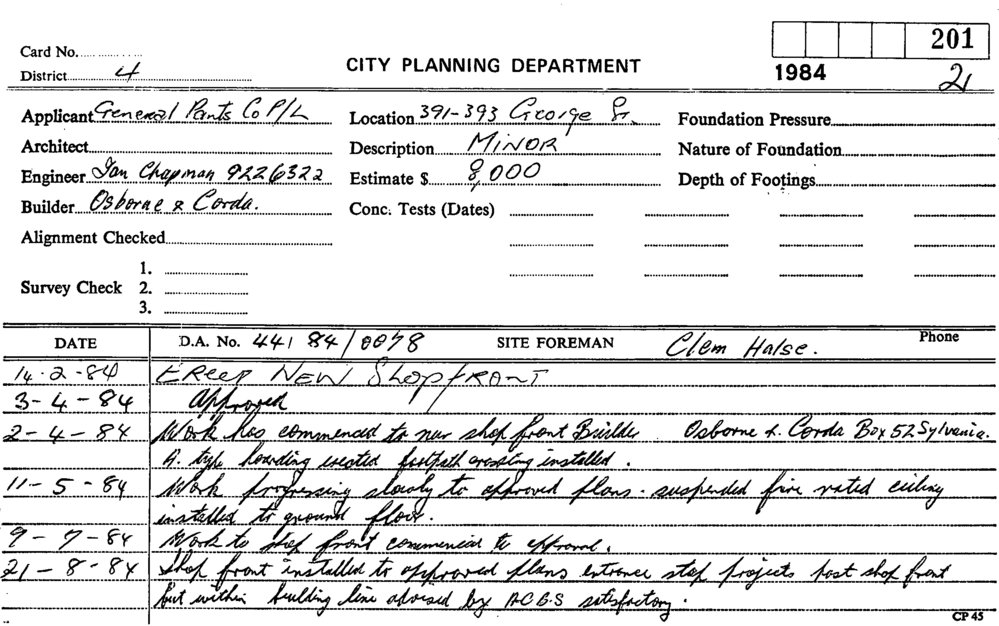 Card No.
201
District 4
CITY PLANNING DEPARTMENT
1984
2
Applicant General Pants Co P/L
Location 391-393 George St.
Foundation Pressure
Architect
Description MINOR
Nature of Foundation
Engineer Ian Chapman 9226322
Estimate $ 8,000
Depth of Footings
Builder Osborne & Corda.
Conc. Tests (Dates)
Alignment Checked
Survey Check
1.
2.
3.
DATE D.A. No. 44/84/0078 SITE FOREMAN Clem Halse. Phone
14-2-84 ERECT NEW Shopfront
3-4-84 Approved
2-4-84 Work has commenced to new shop front Builder Osborne & Corda Box 52 Sylvania.
A. type hoarding erected footpath crossing installed.
11-5-84 Work progressing slowly to approved plans. suspended fire rated ceiling
installed to ground floor.
9-7-84 Work to shop front commenced to approval.
21-8-84 Shop front installed to approved plans entrance step projects past shop front
but within building line advised by A.C.B.S satisfactory.
CP 45